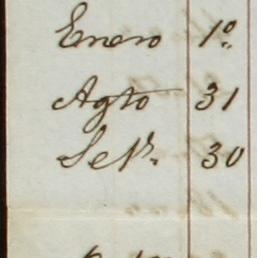 Enero 1º
Agto 31
Seb. 30